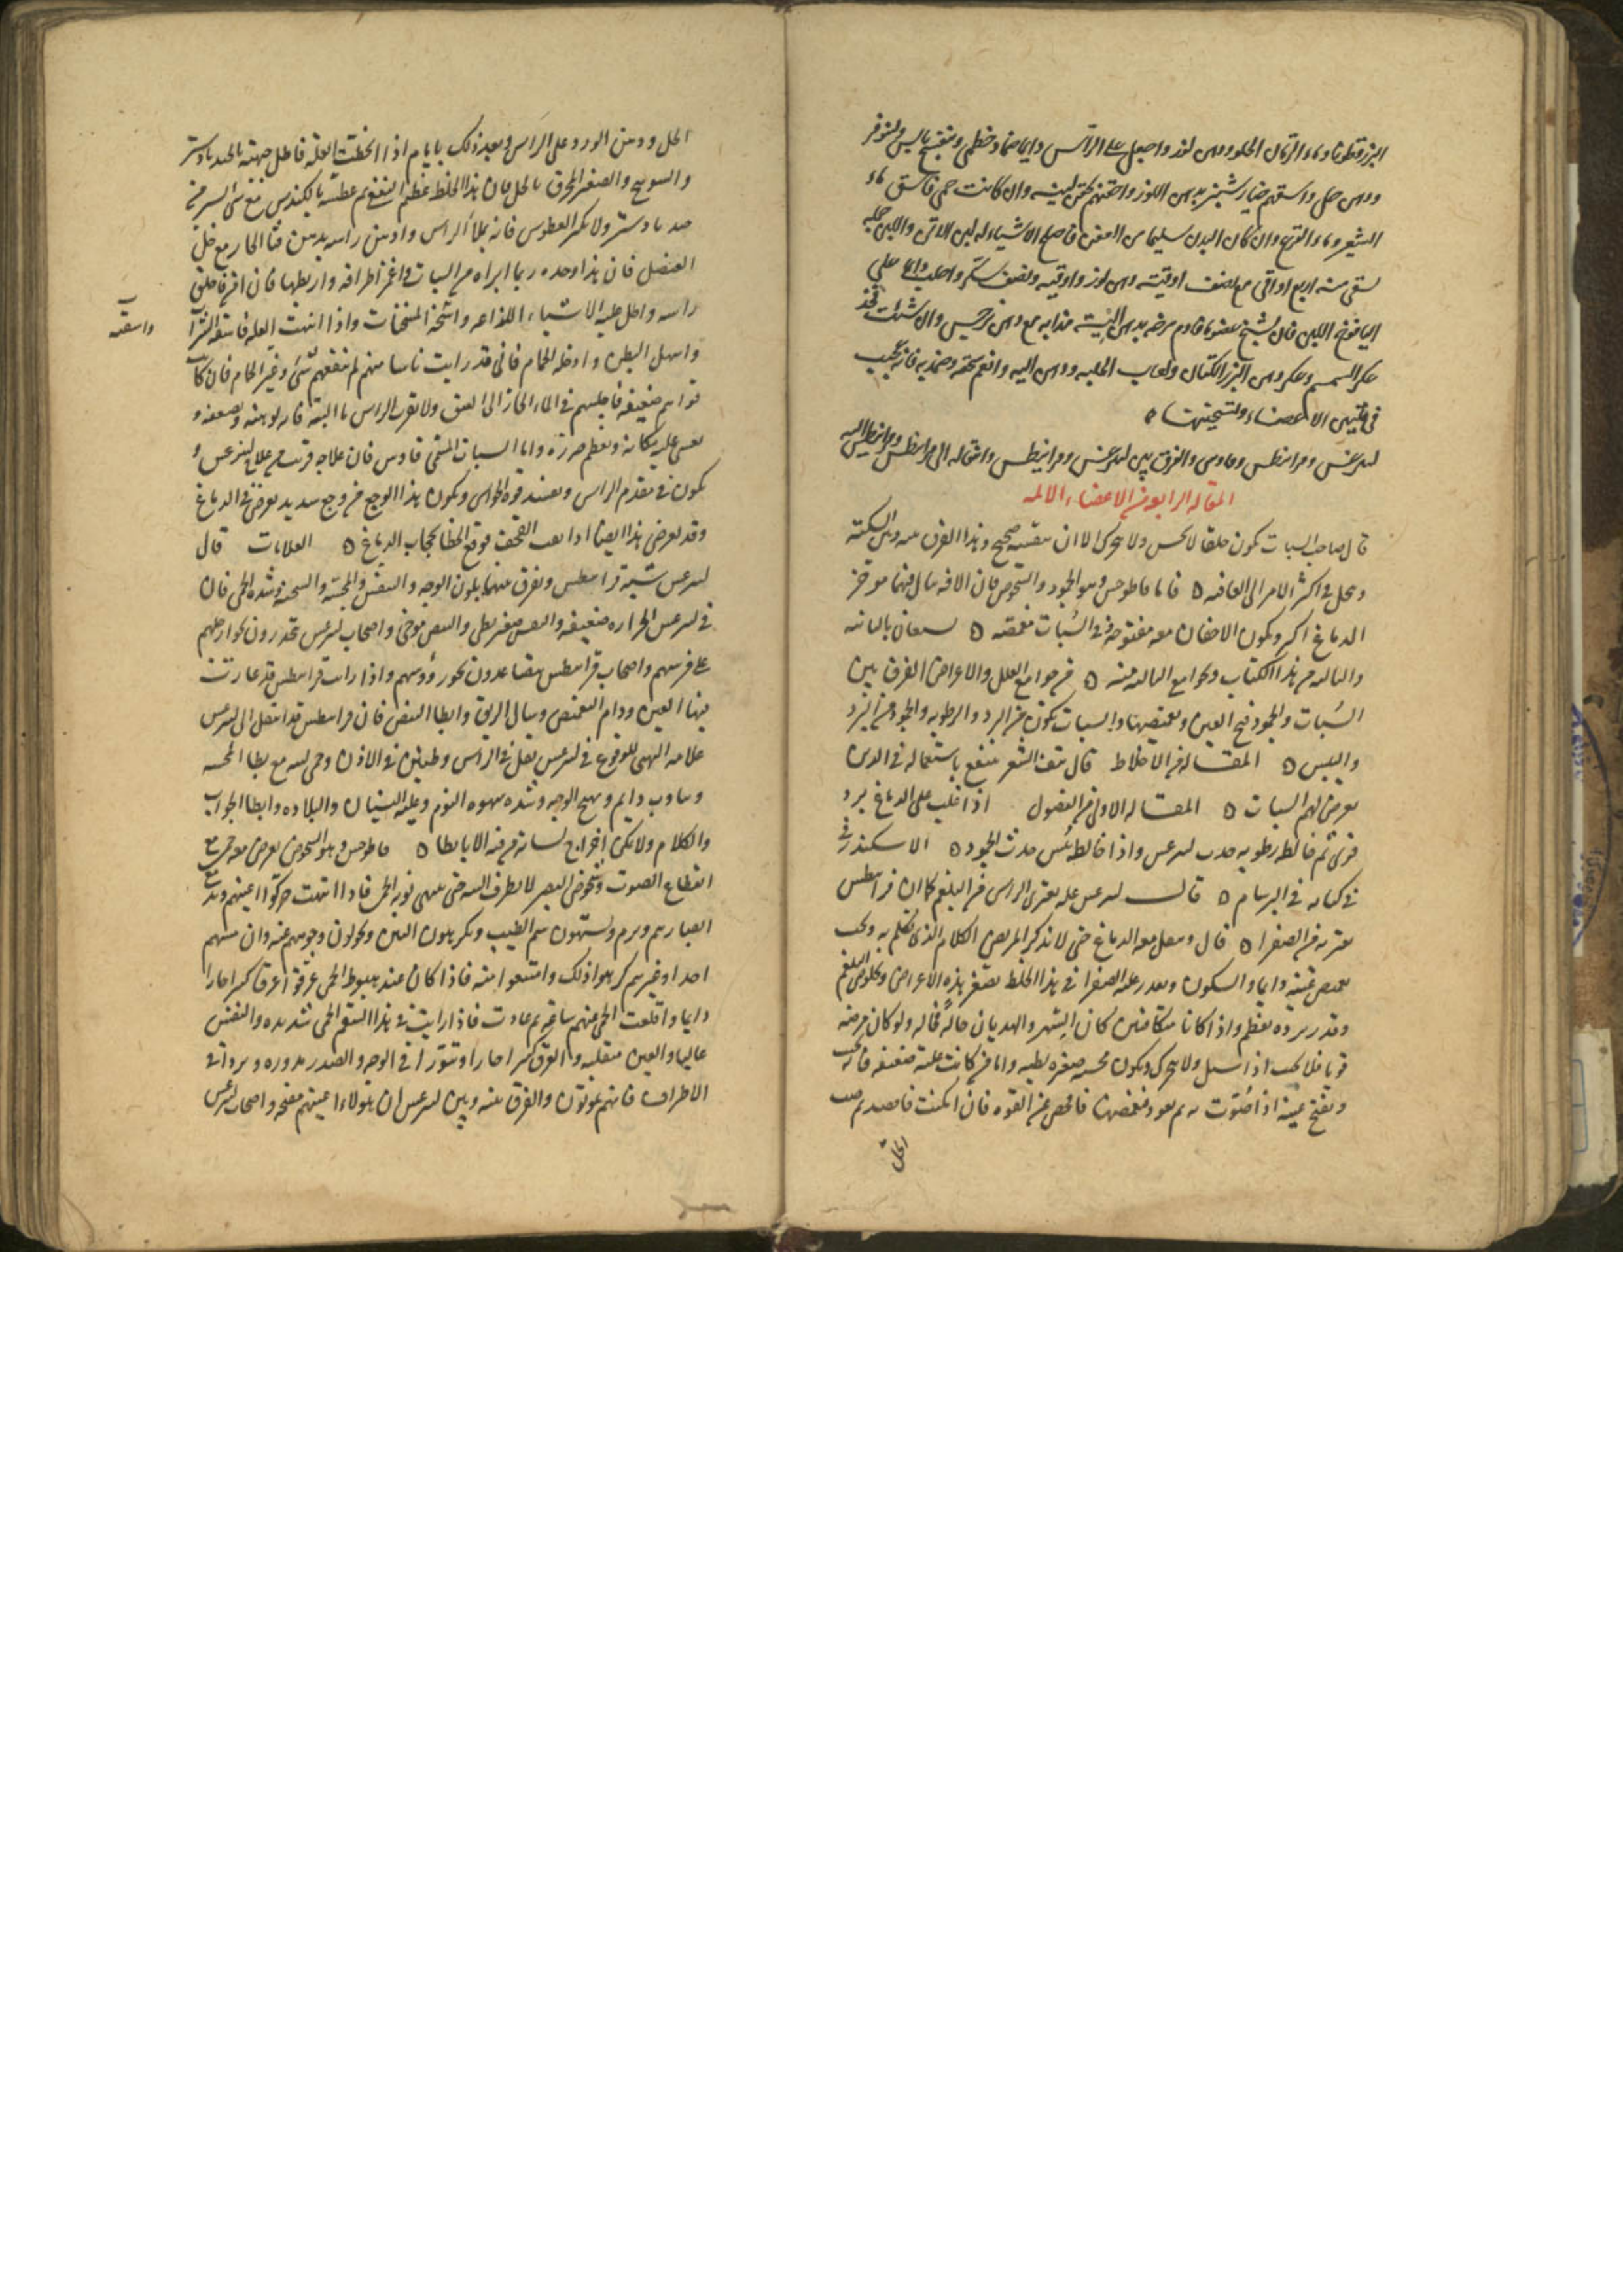 البزرقطونا وماء الرمان الحلو ودهن لوز واجعل على الراس دايما ضماد خطمى وبنفسج يابس ونيلوفر
ودهن حل واسقهم خيار شنبر بدهن اللوز واحقنهم بحقن لينه وان كانت حمى فاسق ماء
الشعير وماء القرع وان كان البدن سليما من العفن فاصلح الاشياء له لبن الاتن والبن
يسقى منه اربع اواقى مع نصف اوقيته دهن لوز واوقيه ونصف سكر واحلب دايما على
اليافوخ اللبن فان تشنج عضو ما فادم مرخه بدهن الية مذابه مع دهن نرجس وان شئت فخذ
عكر السمسم وعكر دهن البزر الكتان ولعاب الحلبه ودهن اليه وانعم سحقه وضمد به فانه عجيب
فى تليين الاعضاء وتسخينها
ليثرغس وقرانيطس وفاوس والفرق بين ليثرغس وقرانيطس وانتقاله الى قرانيطس
المقاله الرابعه من الاعضاء الالمه
قال صاحب السبات يكون ملقا لا يحس ولا يتحرك الا ان تنفسه صحيح وهذا الفرق بينه وبين السكته
وينحل فى اكثر الامر الى العافيه فاما قاطوخس وهو الجمود والشخوص فان الافه تنال فيها موخر
الدماغ اكثر ويكون الاجفان معه مفتوحه وفى السبات مغمضه يستعان بالثانيه
والثالثه من هذا الكتاب وبجوامع الثالثه منه من جوامع العلل والاعراض الفرق بين
السبات والجمود فتح العين وتغميضها والسبات يكون من البرد والرطوبه والجمود من البرد
واليبس المقاله من الاخلاط قال نتف الشعر ينتفع باستعماله فى الذين
يعرض لهم السبات المقاله الاولى من الفصول اذا غلب على الدماغ برد
قوى ثم خالطه رطوبه حدث ليثرغس واذا خالطه يبس حدث الجمود الاسكندر
فى كتابه فى البرسام قال ليثرغس عله يعترى الراس من البلغم كما ان قرانيطس
يعتريه من الصفرا قال ويثقل معه الدماغ حتى لا يذكر المريض الكلام الذى تكلم به ويحب
تغميض عينيه دايما والسكون وبقدر غلبه الصفرا فى هذا الخلط يصغر هذه الاعراض وبخلوص البلغم
وقدر برده يعظم واذا كانا متكافئين كان السهر والهذيان حاله فحاله ولو كان مرضه
قويا فلا يجب اذا سئل ولا يتحرك ويكون مجسه صغيره بطيه واما من كانت علته ضعيفه فانه يجيب
ويفتح عينيه اذا صوت به ثم يعود فيغمضهما فافحص عن القوه فان امكنت فافصد ثم صب
الخل
الخل ودهن الورد على الراس وبعد ذلك بايام اذا انحطت العله فاطل جبهته بالجند بادستر
والصعتر المحرق بالخل فان هذا الخلط عظيم النفع ثم عطسه بالكندس مع شى يسير من
جند بادستر ولا تكثر العطوس فانه يملأ الراس وادهن راسه بدهن قثا الحمار مع خل
العنصل فان هذا وحده ربما ابراه من السبات واغمز اطرافه واربطها فان افرق فاحلق
راسه واطل عليه الاشياء اللذاعه واشمه المسخنات واذا انتهت العله فاسقه الشراب
واسقيه
واسهل البطن وادخله الحمام فانى قد رايت ناسا منهم لم ينفعهم شئ غير الحمام فان كانت
قواهم ضعيفه فاجلسهم فى الماء الحار الى العنق ولا تقرب الراس ماء البته فانه يوهنه ويضعفه و
يغشى عليه مكانه ويعظم ضرره واما السبات المسمى قاوس فان علاجه قريب من علاج ليثرغس و
يكون فى مقدم الراس ويفسد قوه الحواس ويكون هذا الوجع من وجع شديد يعرض فى الدماغ
وقد يعرض هذا ايضا اذا ثقب القحف فوقع الخطا بحجاب الدماغ العلامات قال
ليثرغس شبيه قرانيطس ويفرق بينهما بلون الوجه والنفس والمجسه والسحنه وشده الحمى فان
فى ليثرغس الحراره ضعيفه والنفس صغير بطى والنبض موجى واصحاب ليثرغس ينحدرون بجوارحهم
على فرشهم واصحاب قرانيطس يتصاعدون بحو رؤوسهم واذا رايت قرانيطس قد غارت
فيها العين ودام التغميض وسال الريق وابطا النبض فان قرانيطس قد انتقل الى ليثرغس
علامه التهيى للوقوع فى ليثرغس ثقل فى الراس وطنين فى الاذن وحمى لينه مع بطا المجسه
وتثاوب دايم وتهيج الوجه وشده شهوه النوم وغلبه النسيان والبلاده وابطا الجواب
والكلام ولا يمكن اخراج لسانه من فيه الا بابطا قاطوخس وهو الشخوص يعرض معه حمى مع
انقطاع الصوت وشخوص البصر لا يطرف البته حتى ينتهى نوبه الحمى فاذا انتهت حركوا اعينهم
ابصارهم ويشتهون شم الطيب ويكرهون النتن ويحولون وجوههم عنه وان مسهم
احدا وغيرهم كرهوا ذلك وامتنعوا منه فاذا كان عند هبوط الحمى عرقوا عرقا كثيرا حارا
دايما واقلعت الحمى عنهم ساعه ثم عادت فاذا رايت فى هذا السقم الحمى شديده والنفس
عاليا والعين منقلبه والعرق كثيرا حارا وتنورا فى الوجه والصدر مدوره وبردا فى
الاطراف فانهم يموتون والفرق بينه وبين ليثرغس ان هؤلاء اعينهم مفتحه واصحاب ليثرغس